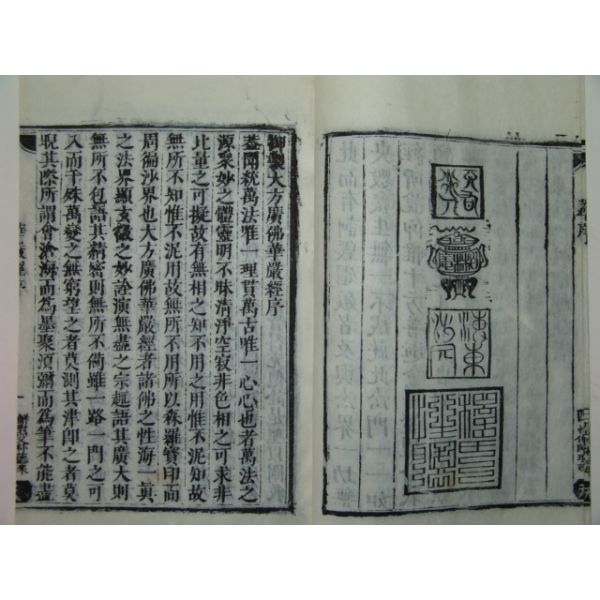 御製大方廣佛華嚴經序
蓋聞統萬法唯一理貫萬古唯一心心也者萬法之
源衆妙之體靈明不昧清淨空寂非色相之可求非
比量之可擬故有無相之知不用之用惟不泥知故
無所不知惟不泥用故無所不用所以森羅寶印而
周徧沙界也大方廣佛華嚴經者諸佛之性海一眞
之法界顯玄微之妙詮演無盡之宗趣語其廣大則
無所不包語其精密則無所不備雖一路一門之可
入而千殊萬變之無窮望之者莫測其津即之者莫
睨其際所謂會滄海而爲墨聚須彌而爲筆不能盡